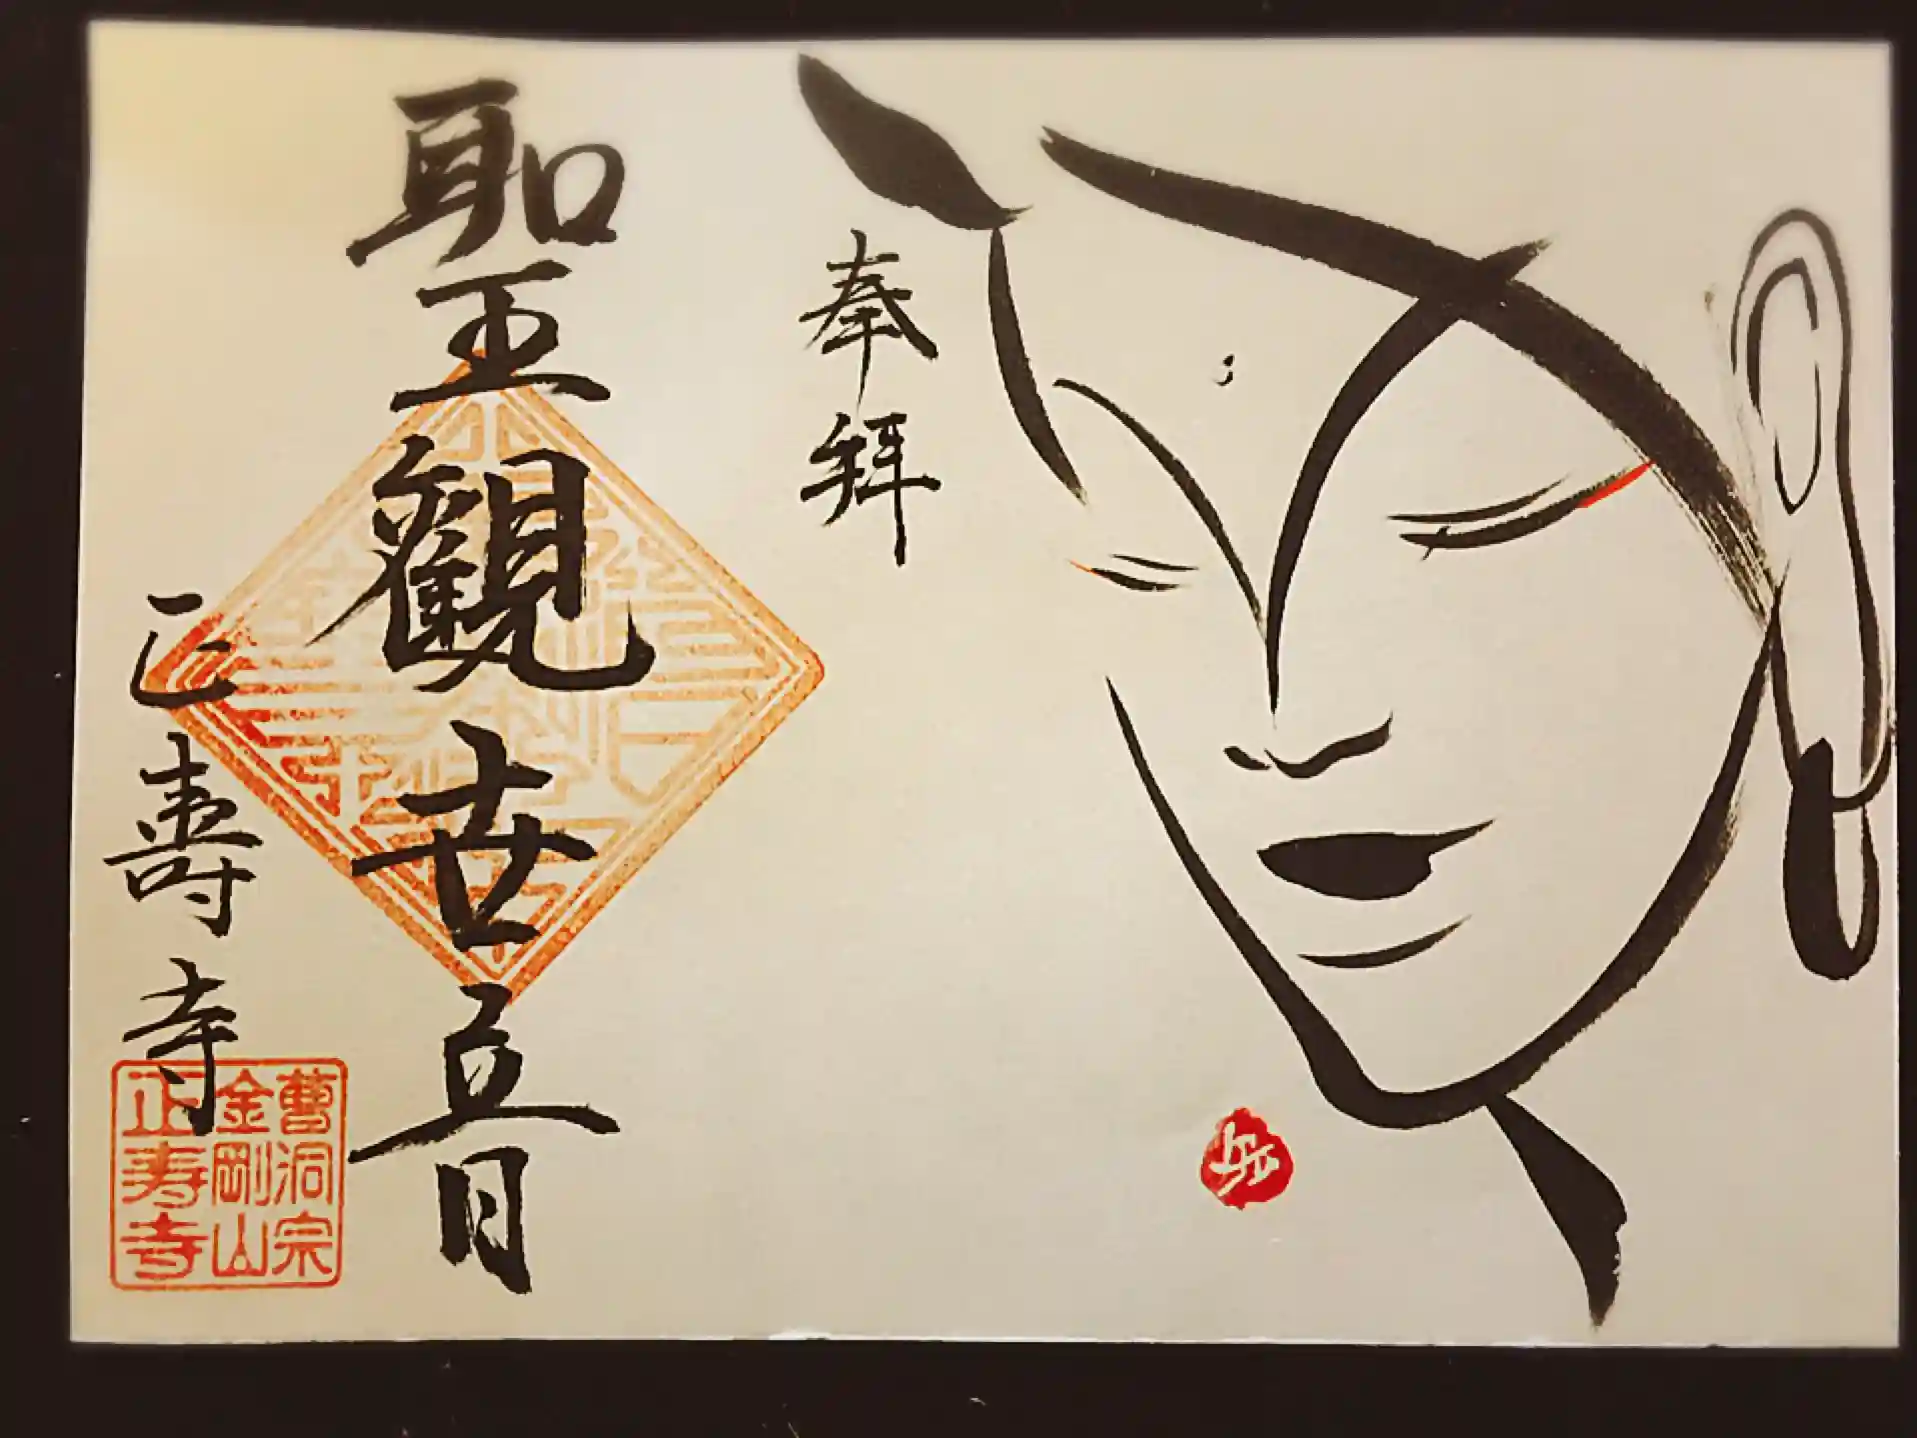 奉拝
聖観世音
正壽寺
曹洞宗
金剛山
正寿寺